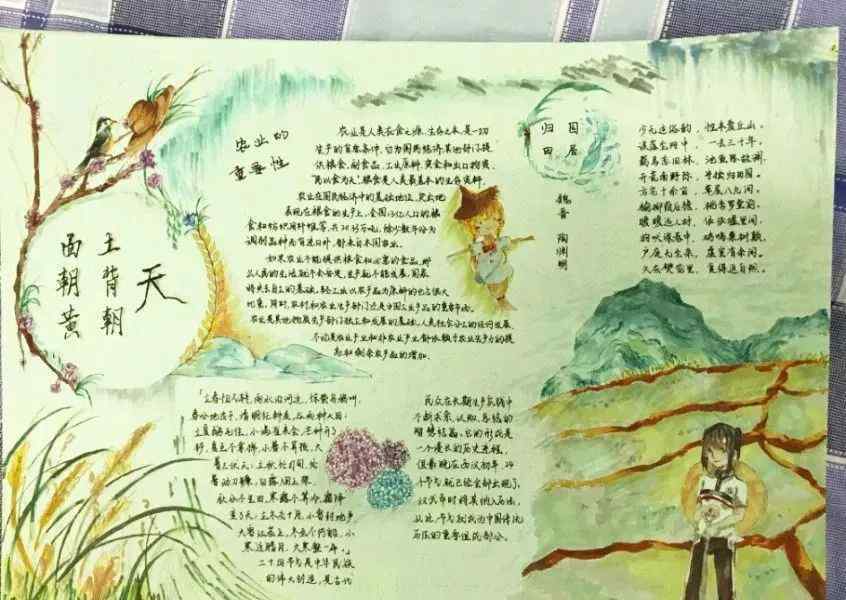 面朝黄
土背朝
天
农业的
重要性
农业是人类衣食之源、生存之本,是一切
生产的首要条件。它为国民经济其他部门提
供粮食、副食品、工业原料、资金和出口物资。
"民以食为天",粮食是人类最基本的生存资料,
农业在国民经济中的基础地位,突出地
表现在粮食的生产上。
如果农业不能提供粮食和必需的食品,那
么人民的生活就不会安定,生产就不能发展,国家
将失去自立的基础。轻工业以农产品为原料的也占很大
比重,同时,农村和农业生产部门还是
农业是其他物质生产部门独立和发展的基础,
不论是农业生产和非农业产业都依赖于农业劳动力的提
高和剩余农产品的增加。
归园
田居
魏晋 陶渊明
少无适俗韵,性本爱丘山。
误落尘网中,一去三十年。
羁鸟恋旧林,池鱼思故渊。
开荒南野际,守拙归园田。
方宅十余亩,草屋八九间。
榆柳荫后檐,桃李罗堂前。
暧暧远人村,依依墟里烟。
狗吠深巷中,鸡鸣桑树颠。
户庭无尘杂,虚室有余闲。
久在樊笼里,复得返自然。
「立春阳气转,雨水沿河边,惊蛰乌鸦叫,
春分地皮干,清明忙种麦,谷雨种大田;
立夏鹅毛住,小满雀来全,芒种开了
铲,夏至不拿棉,小暑不算热,大
暑三伏天;立秋忙打甸,处
暑动刀镰,白露
秋分不生田,寒露不算冷,霜降
变了天;立冬交十月,小雪封地严,
大雪江茬上,冬至不行船,小
寒近腊月,大寒整一年。」
二十四节气是中华民族
的伟大创造,是古代
民众在长期生产实践中
不断求索、认知、总结的
智慧结晶。它的形成是
一个漫长的历史进程,
但最晚在西汉初年,24
节气就已经全部出现了,
汉武帝时将其纳入历法,
从此,节气就成为中国传统
历法的重要组成部分。